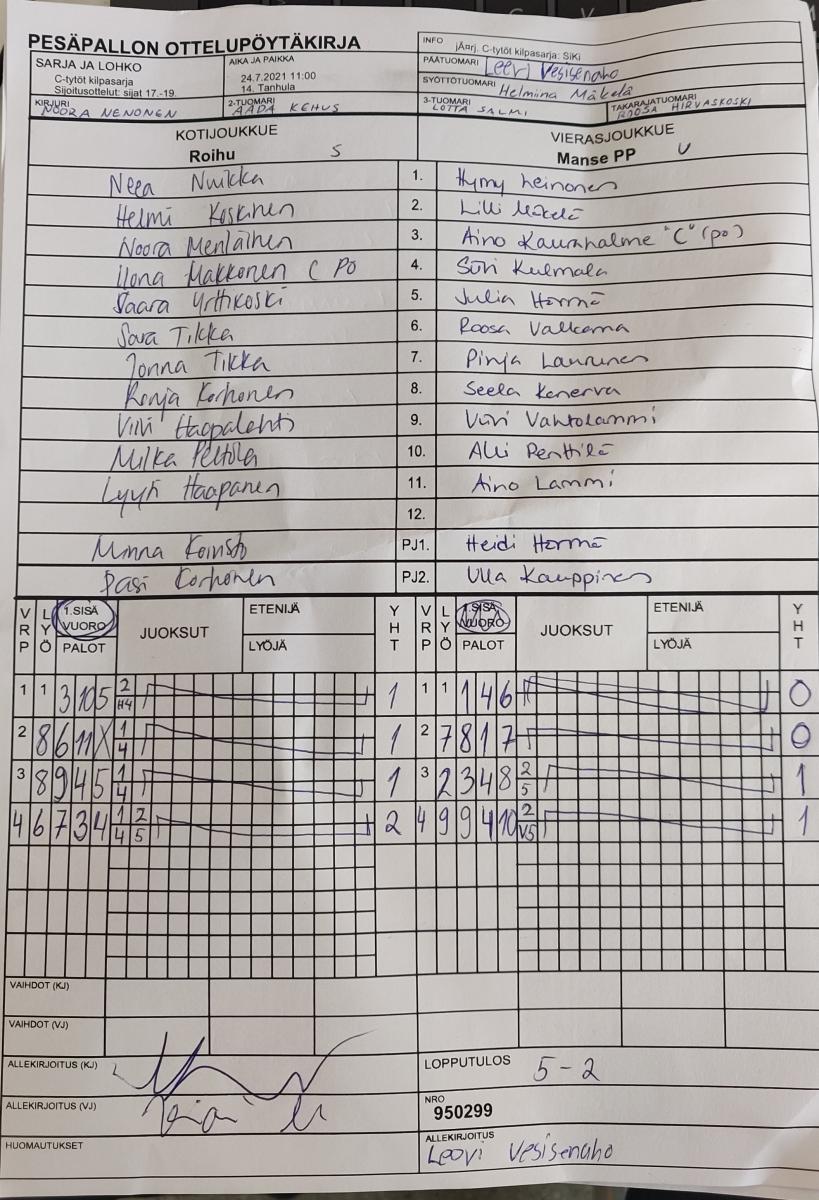 PESÄPALLON OTTELUPÖYTÄKIRJA
INFO jÄrj. C-tytöt kilpasarja: SiKi
SARJA JA LOHKO
C-tytöt kilpasarja
Sijoitusottelut: sijat 17.-19.
AIKA JA PAIKKA
24.7.2021 11:00
14. Tanhula
PÄÄTUOMARI Leevi Vesisenaho
SYÖTTÖTUOMARI Helmina Mäkelä
KIRJURI NOORA NENONEN
2-TUOMARI AADA KEHUS
3-TUOMARI LOTTA SALMI
TAKARAJATUOMARI ROOSA HIRVASKOSKI
KOTIJOUKKUE
Roihu S
VIERASJOUKKUE
Manse PP U
Neea Nuikka 1. Hymy Leinonen
Helmi Koskinen 2. Lilli Mäkelä
Noora Menläinen 3. Aino Kaunhalme "C" (po)
Ilona Makkonen C PO 4. Siiri Kulmala
Saara Yrttikoski 5. Julia Hormä
Sara Tikka 6. Roosa Valkama
Jonna Tikka 7. Pinja Laurunen
Ronja Korhonen 8. Seela Kenerva
Viivi Haapalehti 9. Viivi Vahtolammi
Milka Peltola 10. Alli Penttilä
Lyyti Haapanen 11. Aino Lammi
12.
Minna Koivisto PJ1. Heidi Hormä
Pasi Korhonen PJ2. Ulla Kauppinen
VRP LYÖ 1.SISÄVUORO PALOT JUOKSUT ETENIJÄ LYÖJÄ YHT VRP LYÖ 1.SISÄVUORO PALOT JUOKSUT ETENIJÄ LYÖJÄ YHT
1 1 3 10 5 2 H4 1 1 1 1 4 6 0
2 8 6 11 X 1 4 1 2 7 8 1 7 0
3 8 9 4 5 1 4 1 3 2 3 4 8 2 5 1
4 6 7 3 4 1 4 2 5 2 4 9 9 4 10 2 V5 1
VAIHDOT (KJ)
VAIHDOT (VJ)
ALLEKIRJOITUS (KJ)
LOPPUTULOS 5-2
ALLEKIRJOITUS (VJ)
NRO
950299
HUOMAUTUKSET
ALLEKIRJOITUS
Leevi Vesisenaho